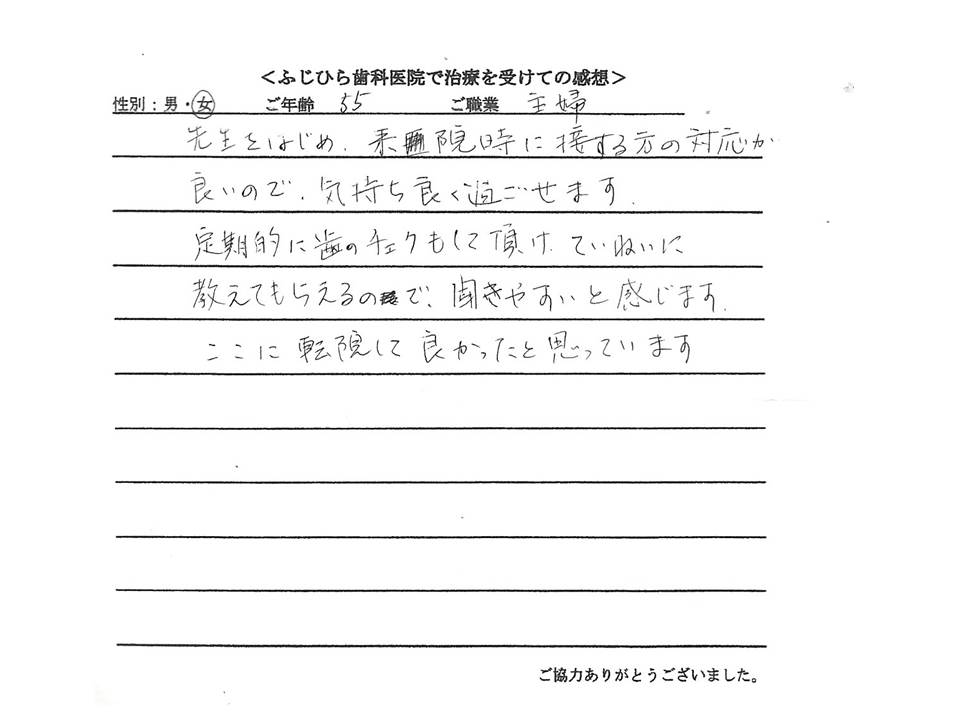 ＜ふじひら歯科医院で治療を受けての感想＞
性別：男・女 ご年齢 55 ご職業 主婦
先生をはじめ、来院時に接する方の対応が
良いので、気持ち良く過ごせます。
定期的に歯のチェクもして頂け、ていねいに
教えてもらえるので、聞きやすいと感じます。
ここに転院して良かったと思っています
ご協力ありがとうございました。